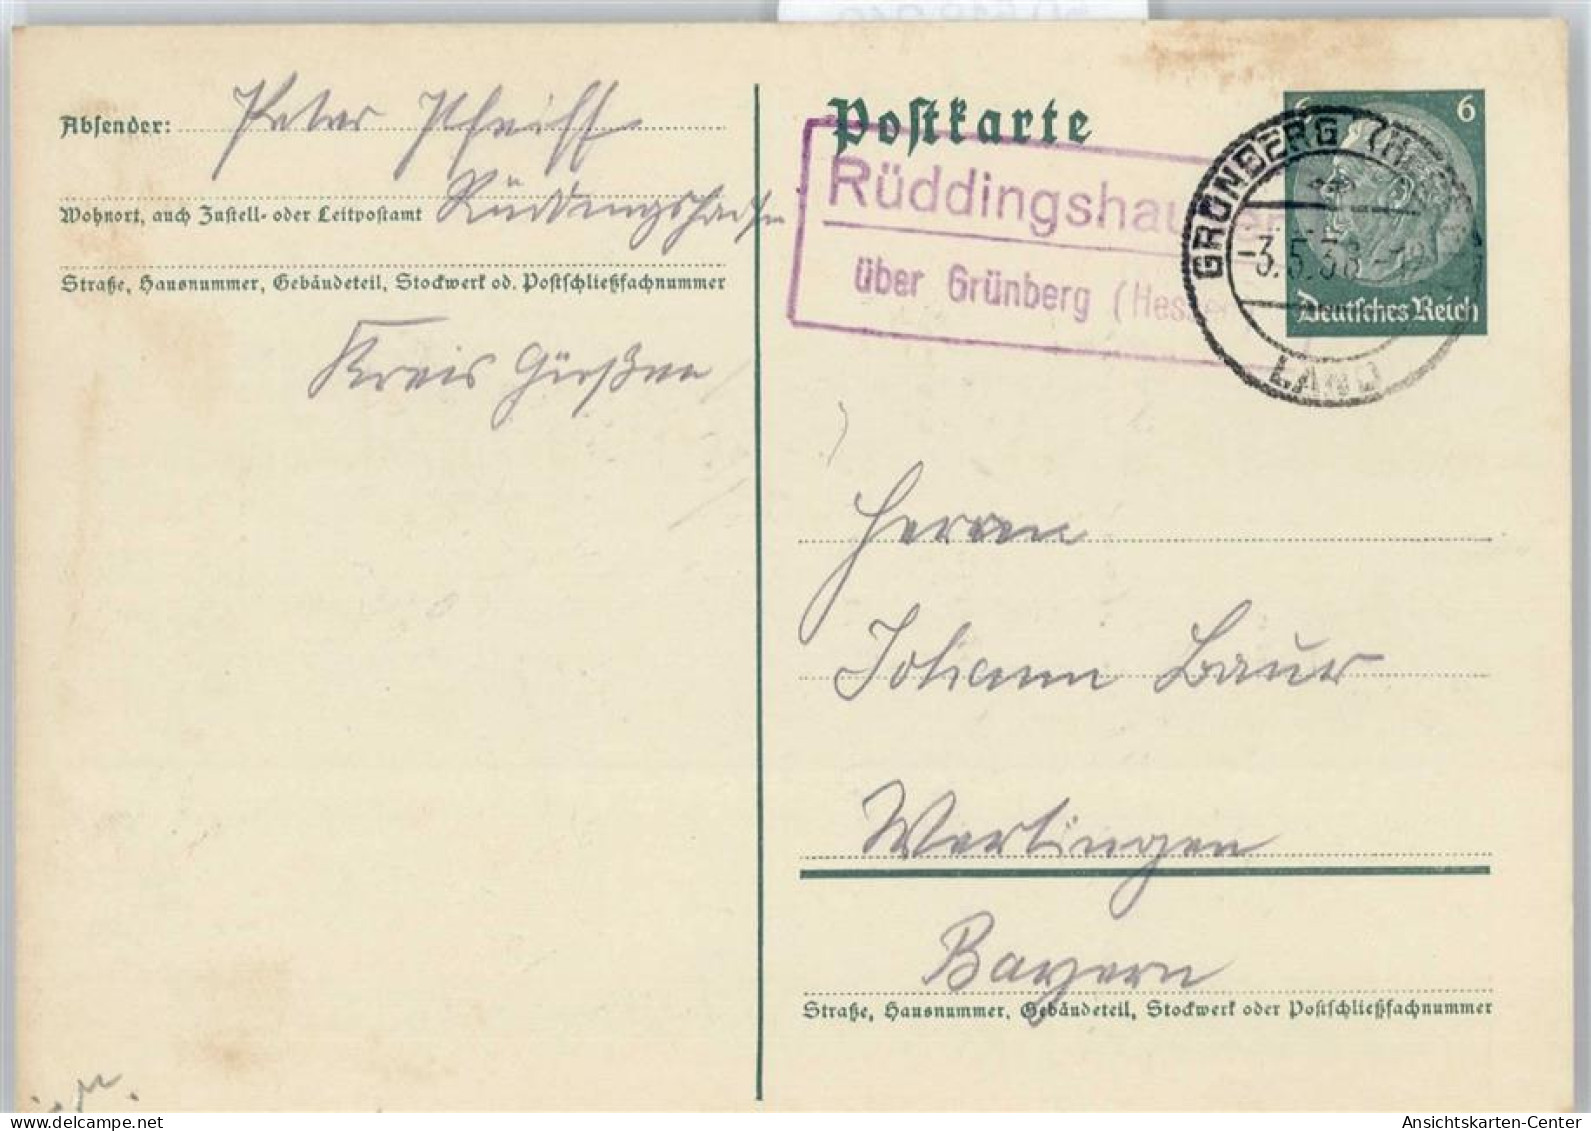 Absender: Peter Pfeiff
Wohnort, auch Zustell- oder Leitpostamt Rüddingshausen
Straße, Hausnummer, Gebäudeteil, Stockwerk od. Postschließfachnummer
Kreis Gießen
Postkarte
Rüddingshausen
über Grünberg (Hessen
6
6
GRÜNBERG (HESSEN)
-3.5.38
LAND
Deutsches Reich
Herren
Johann Baur
Wertingen
Bayern
Straße, Hausnummer, Gebäudeteil, Stockwerk oder Postschließfachnummer
Ansichtskarten-Center